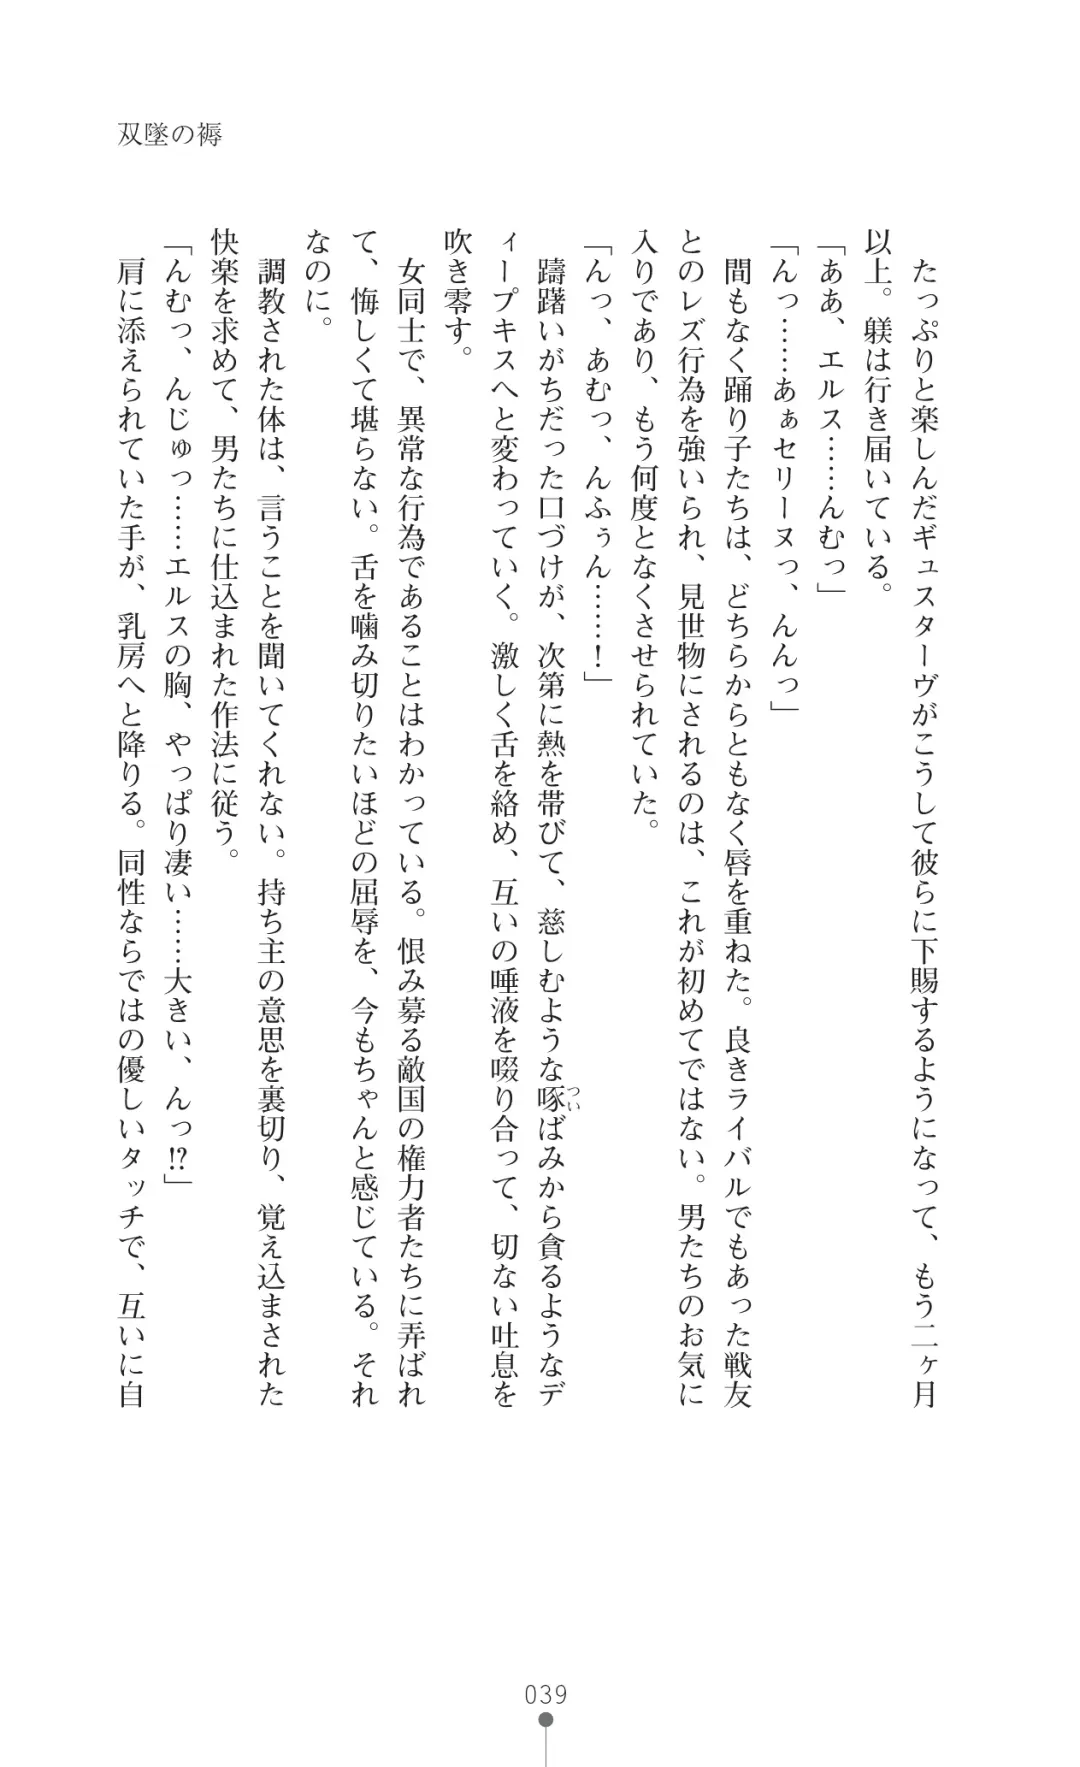 双墜の褥
たっぷりと楽しんだギュスターヴがこうして彼らに下賜するようになって、もう二ヶ月
以上。躾は行き届いている。
「ああ、エルス……んむっ」
「んっ……あぁセリーヌっ、んんっ」
間もなく踊り子たちは、どちらからともなく唇を重ねた。良きライバルでもあった戦友
とのレズ行為を強いられ、見世物にされるのは、これが初めてではない。男たちのお気に
入りであり、もう何度となくさせられていた。
「んっ、あむっ、んふぅん……！」
躊躇いがちだった口づけが、次第に熱を帯びて、慈しむような啄ばみから貪るようなデ
ィープキスへと変わっていく。激しく舌を絡め、互いの唾液を啜り合って、切ない吐息を
吹き零す。
女同士で、異常な行為であることはわかっている。恨み募る敵国の権力者たちに弄ばれ
て、悔しくて堪らない。舌を噛み切りたいほどの屈辱を、今もちゃんと感じている。それ
なのに。
調教された体は、言うことを聞いてくれない。持ち主の意思を裏切り、覚え込まされた
快楽を求めて、男たちに仕込まれた作法に従う。
「んむっ、んじゅっ……エルスの胸、やっぱり凄い……大きい、んっ!?」
肩に添えられていた手が、乳房へと降りる。同性ならではの優しいタッチで、互いに自
つい
039